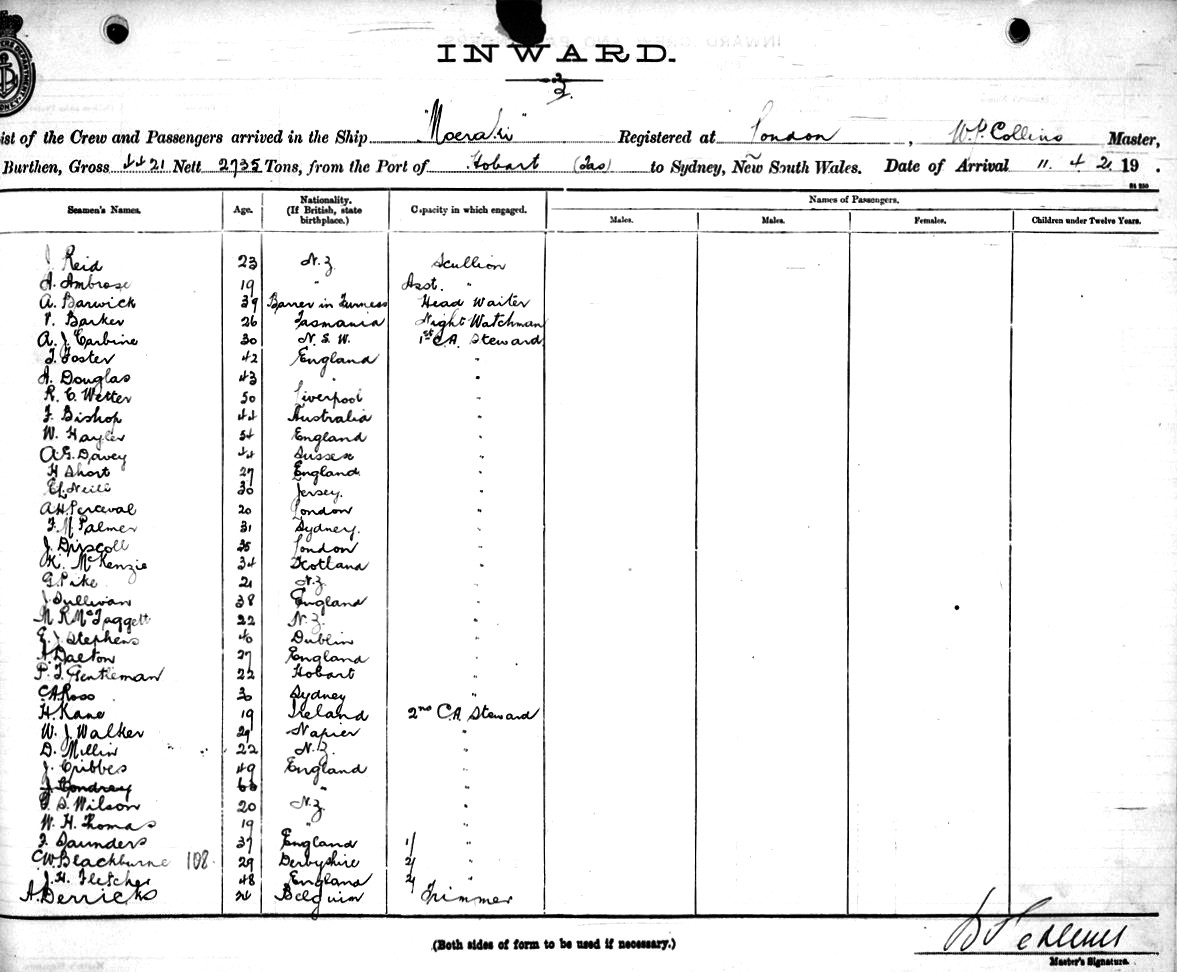 INWARD.
2.
ist of the Crew and Passengers arrived in the Ship "Moeraki" Registered at London , W. P. Collins Master,
Burthen, Gross 4421 Nett 2735 Tons, from the Port of Hobart (Tas) to Sydney, New South Wales. Date of Arrival 11. 4. 21 19 .
Seamen's Names. Age. Nationality. (If British, state birthplace.) Capacity in which engaged. Names of Passengers.
Males. Males. Females. Children under Twelve Years.
J. Reid 23 N.Z. Scullion
A. Ambrose 19 " Asst. "
A. Barwick 39 Barrer in Furness Head Waiter
V. Barker 26 Tasmania Night Watchman
A. J. Carbine 30 N. S. W. 1st C.A. Steward
T. Foster 42 England "
A. Douglas 43 " "
R. C. Wetter 50 Liverpool "
F. Bishop 44 Australia "
W. Hayler 54 England "
A. G. Davey 44 Sussex "
H Short 27 England "
Neill 30 Jersey. "
A H Perceval 20 London "
F. M. Palmer 31 Sydney. "
J. Driscoll 35 London "
K. McKenzie 34 Scotland "
G. Pike 21 N.Z. "
J. Sullivan 38 England "
M. R. McTaggett 22 N.Z. "
E. J. Stephens 40 Dublin "
A. Dalton 27 England "
P. J. Gentleman 22 Hobart "
C. A. Ross 30 Sydney "
H. Kane 19 Ireland 2nd C.A. Steward
W. J. Walker 29 Napier "
D. Millin 22 N.Z. "
J. Cribbes 49 England "
J. Condrey 63 " "
G. S. Wilson 20 N.Z. "
W. H. Thomas 19 " "
F. Saunders 37 England 1/ "
C W Blackburne 108. 29 Derbyshire 2/ "
J. H. Fletcher 48 England 2/ "
A. Derricks 24 Belguim Trimmer
(Both sides of form to be used if necessary.)
Master's Signature.